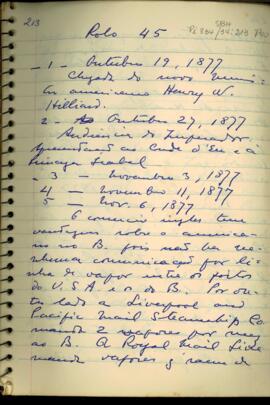 213
SBH
Rolo 45
1 - Outubro 19, 1877
Chegada do novo minis-
tro americano Henry W.
Hilliard.
2 - Outubro 27, 1877
Audiencia do Imperador
apresentação ao Conde d'Eu e à
Princeza Isabel
3 - Novembro 3, 1877
4 - Novembro 11, 1877
5 - Nov. 6, 1877
O comercio ingles tem
vantagens sobre o america-
no no B. pois não há ne-
nhuma comunicação por li-
nha de vapor entre os portos
do U.S.A. e os do B. Por ou-
tro lado a Liverpool and
Pacific Mail Steamship Co.
manda 2 vapores por mez
ao B. A Royal Mail
manda vapores